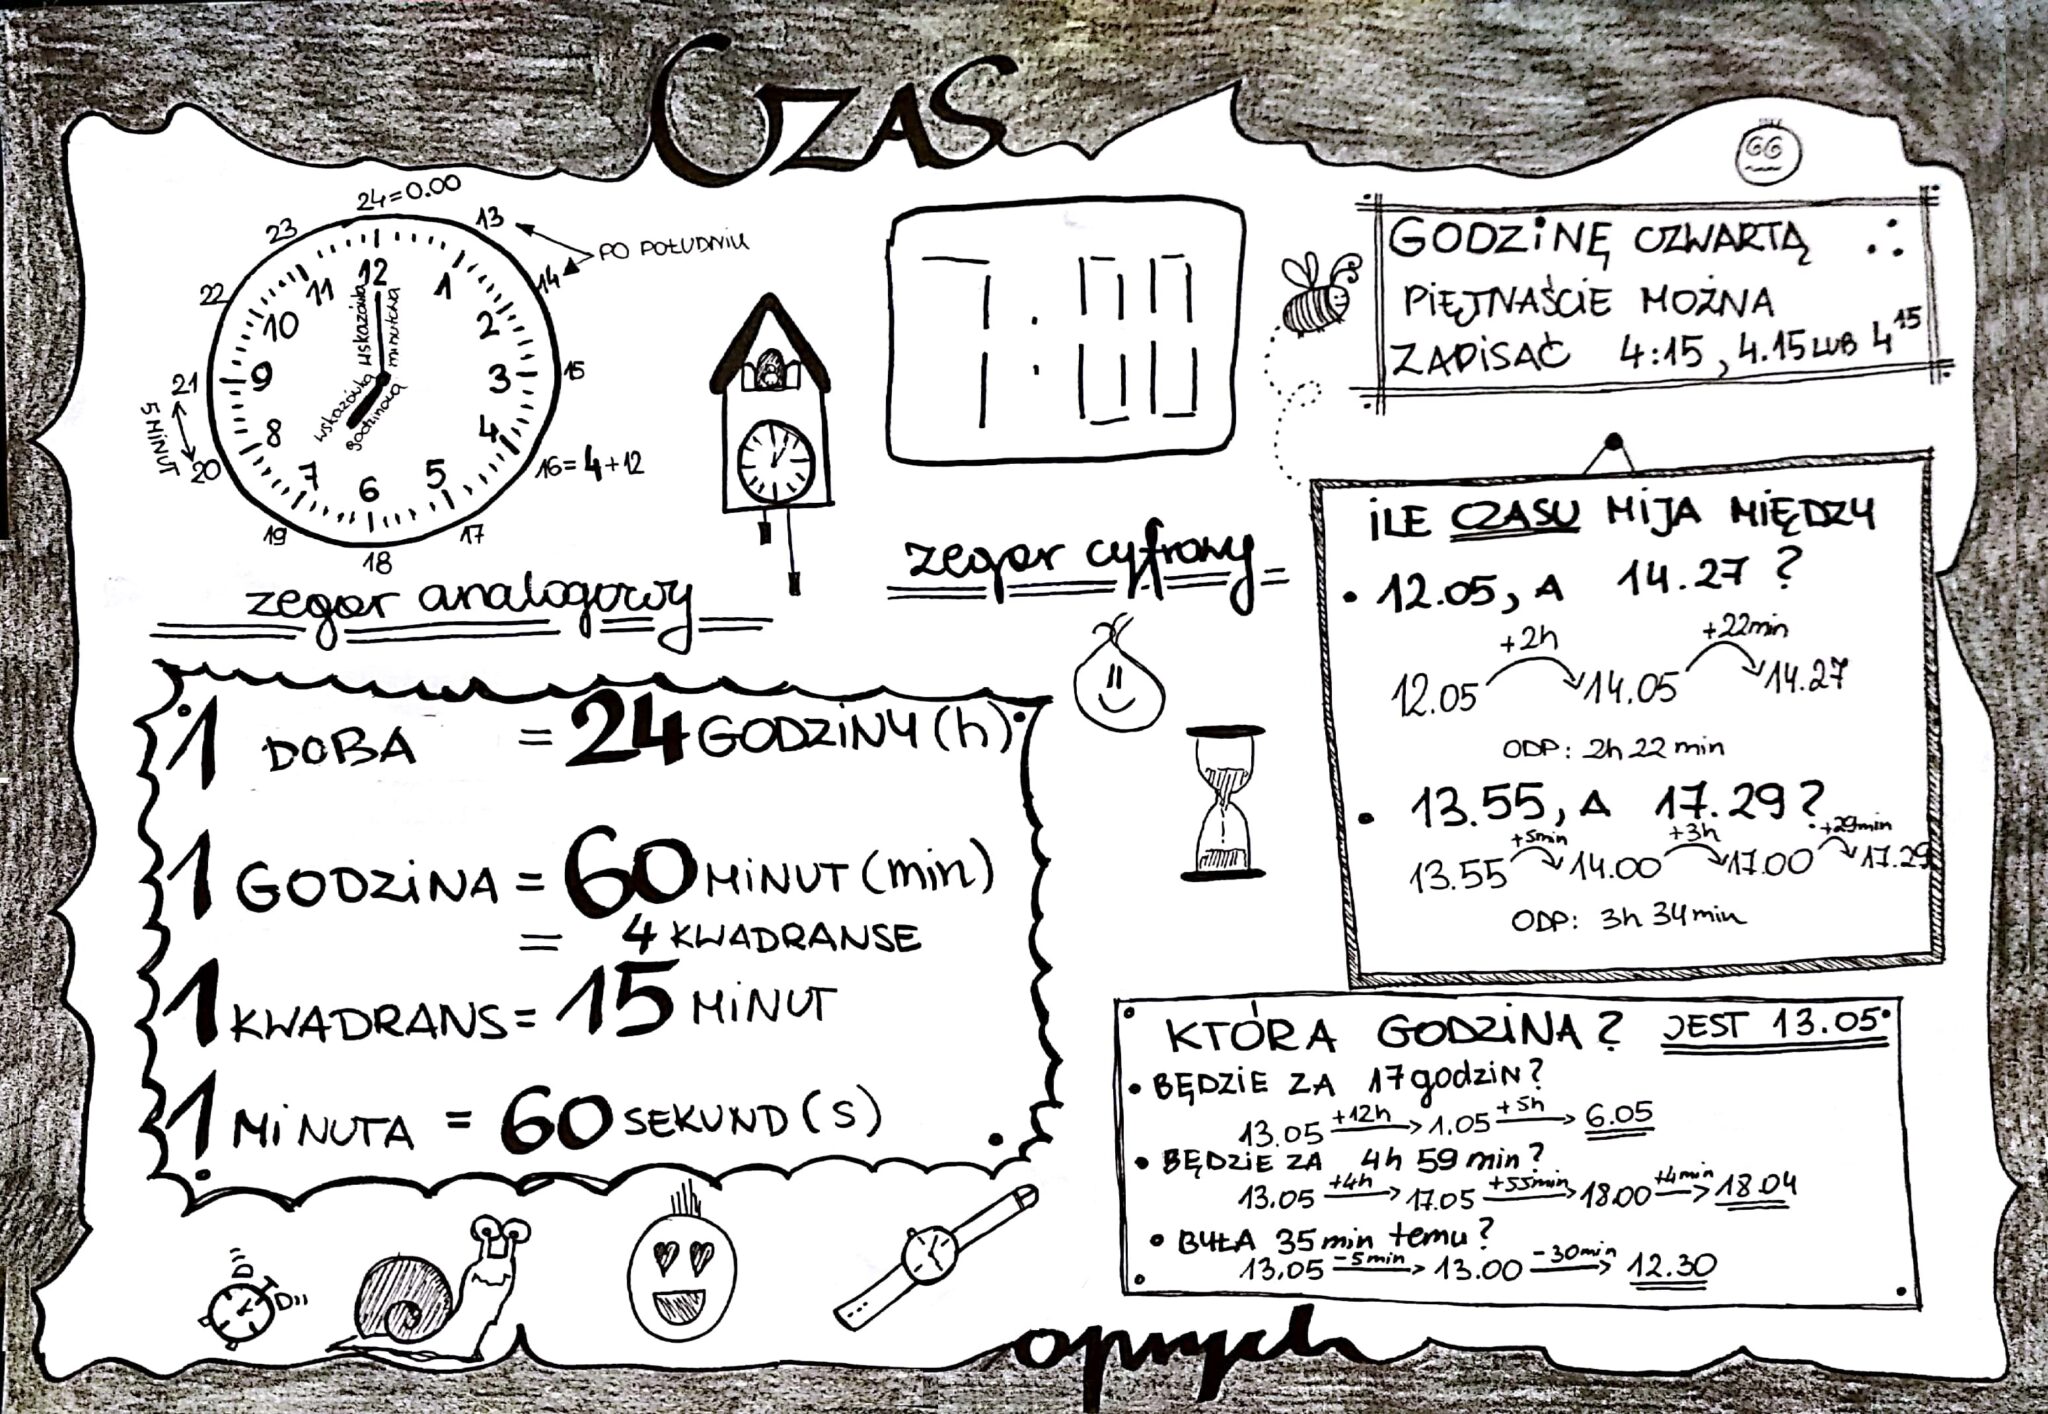 CZAS
24=0.00
13
14
PO POŁUDNIU
15
16=4+12
17
18
19
20
21
22
23
5 MINUT
12
1
2
3
4
5
6
7
8
9
10
11
wskazówka minutowa
wskazówka godzinowa
zegar analogowy
7:00
zegar cyfrowy
GODZINĘ CZWARTĄ
PIĘTNAŚCIE MOŻNA
ZAPISAĆ 4:15, 4.15 LUB 4¹⁵
1 DOBA = 24 GODZINY (h)
1 GODZINA = 60 MINUT (min)
= 4 KWADRANSE
1 KWADRANS = 15 MINUT
1 MINUTA = 60 SEKUND (s)
ILE CZASU MIJA MIĘDZY
• 12.05, A 14.27?
+2h +22min
12.05 14.05 14.27
ODP: 2h 22 min
• 13.55, A 17.29?
+5min +3h +29min
13.55 14.00 17.00 17.29
ODP: 3h 34min
KTÓRA GODZINA? JEST 13.05
• BĘDZIE ZA 17 godzin?
+12h +5h
13.05 → 1.05 → 6.05
• BĘDZIE ZA 4h 59 min?
+4h +55min +4min
13.05 → 17.05 → 18.00 → 18.04
• BYŁA 35 min temu?
-5min -30min
13.05 → 13.00 → 12.30